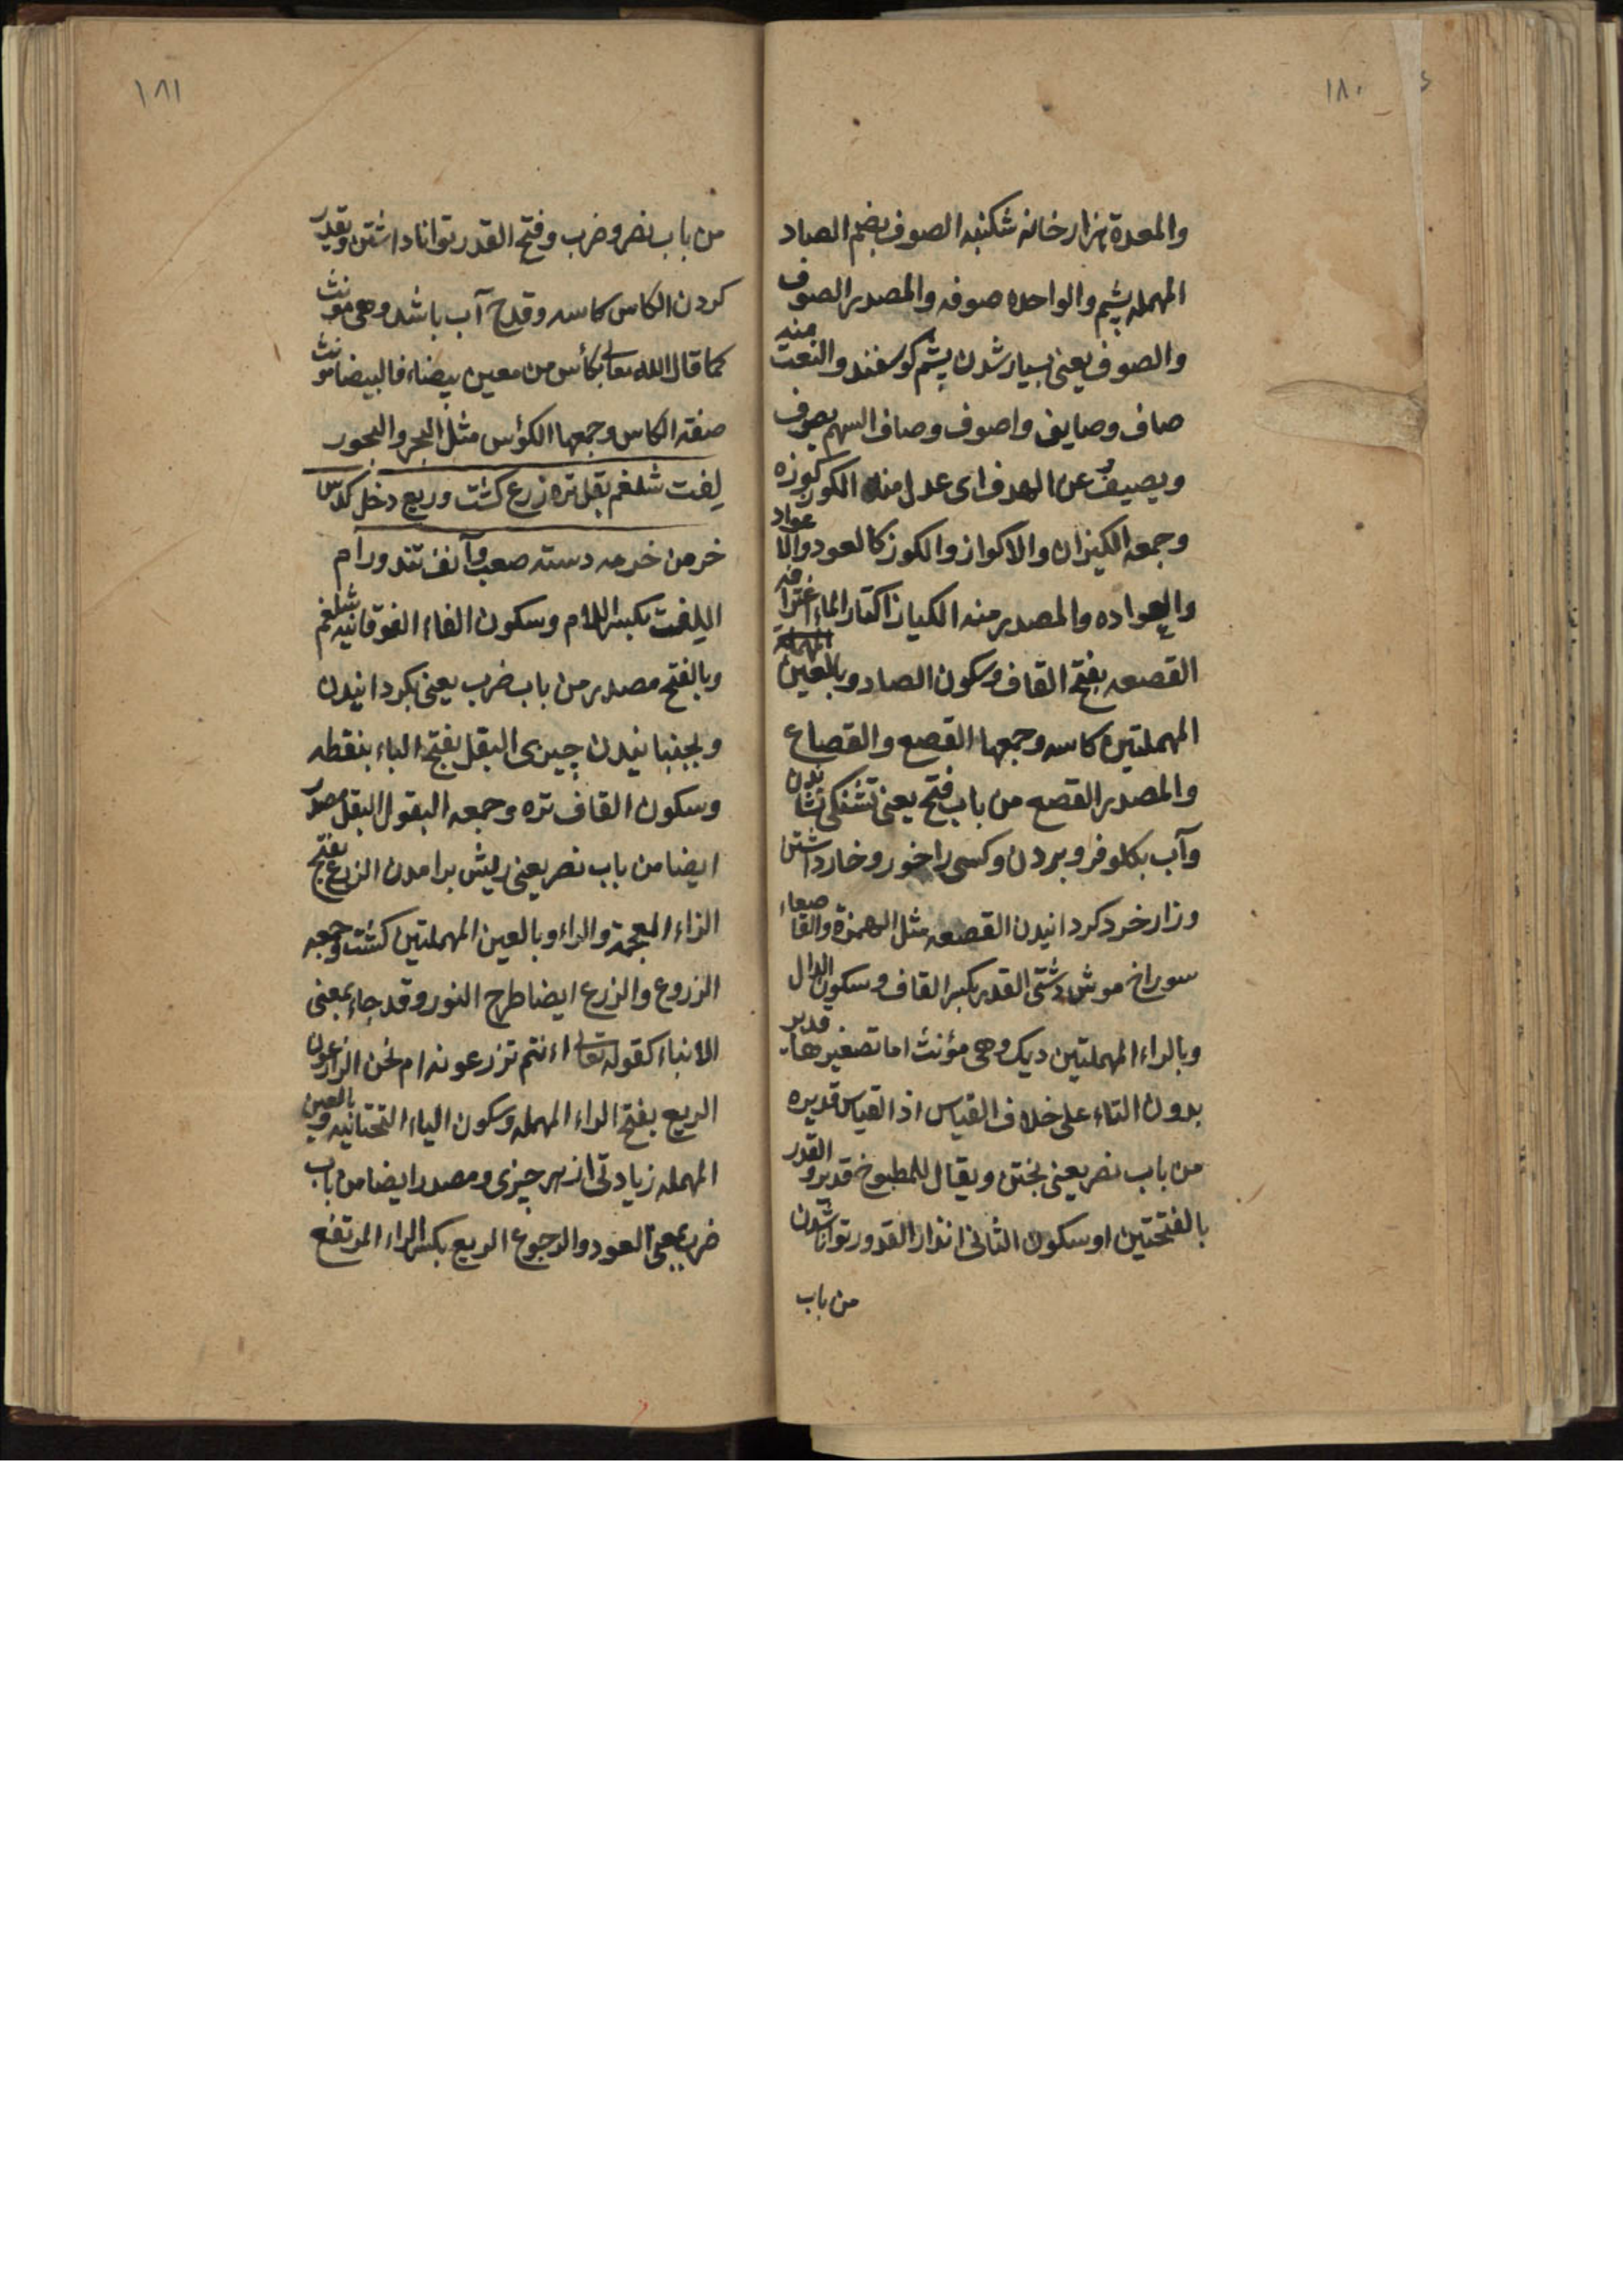 ١٨٠
والمعدة هزار خانه شكنبه الصوف بضم الصاد
المهمله پشم والواحده صوفه والمصدر الصوف
والصوف يعنى بسيار شدن پشم كوسفند والنعت منه
صاف وصايف واصوف وصاف السهم يصوف
ويصيف عن الهدف اى عدل منه الكوز كوزه
وجمعه الكيزان والاكواز والكوز كالعود والاعواد
والعواده والمصدر منه الكياز اكتار الماء اغترافه
القصعه بفتح القاف وسكون الصاد وبالعين
المهملتين كاسه وجمعها القصع والقصاع
والمصدر القصع من باب فتح يعنى تشنكى نشاندن
وآب بكلو فرو بردن وكسى را خور وخار داشتن
وزار خرد كردانيدن القصعه مثل الهمزة والقاصعاء
سوراخ موش دشتى القدر بكسر القاف وسكون الدال
وبالراء المهملتين ديك وهى مؤنث اما تصغيرها قدير
بدون التاء على خلاف القياس اذ القياس قديره القدر
من باب نصر يعنى پختن ويقال للمطبوخ قدير و
بالفتحتين او سكون الثانى اندازه القدور توانا شدن
من باب
١٨١
من باب نصر وضرب وفتح القدر توانا داشتن وتقدير
كردن الكاس كاسه وقدح آب باشد وهى مونث
كما قال الله تعالى بكأس من معين بيضاء فالبيضا مونث
صفته الكاس وجمعها الكؤس مثل البحر والبحور
لفت شلغم بقل تره زرع كشت وريع دخل كدس
خرمن خرمه دسته صعب وآنف تند ورام
اللفت بكسر اللام وسكون الفاء الفوقانيه شلغم
وبالفتح مصدر من باب ضرب يعنى بكردانيدن
وبجنبانيدن چيزى البقل بفتح الباء بنقطه
وسكون القاف تره وجمعه البقول البقل مصدر
ايضا من باب نصر يعنى ريش برامدن الزرع بفتح
الزاء المعجمة والراء وبالعين المهملتين كشت وجمعه
الزروع والزرع ايضا طرح البذور وقد جاء بمعنى
الانبات كقوله تعالى ءانتم تزرعونه ام نحن الزارعون
الريع بفتح الراء المهمله وسكون الياء التحتانيه وبالعين
المهمله زيادتى از هر چيزى ومصدر ايضا من باب
ضرب بمعنى العود والرجوع الريع بكسر الراء المرتفع